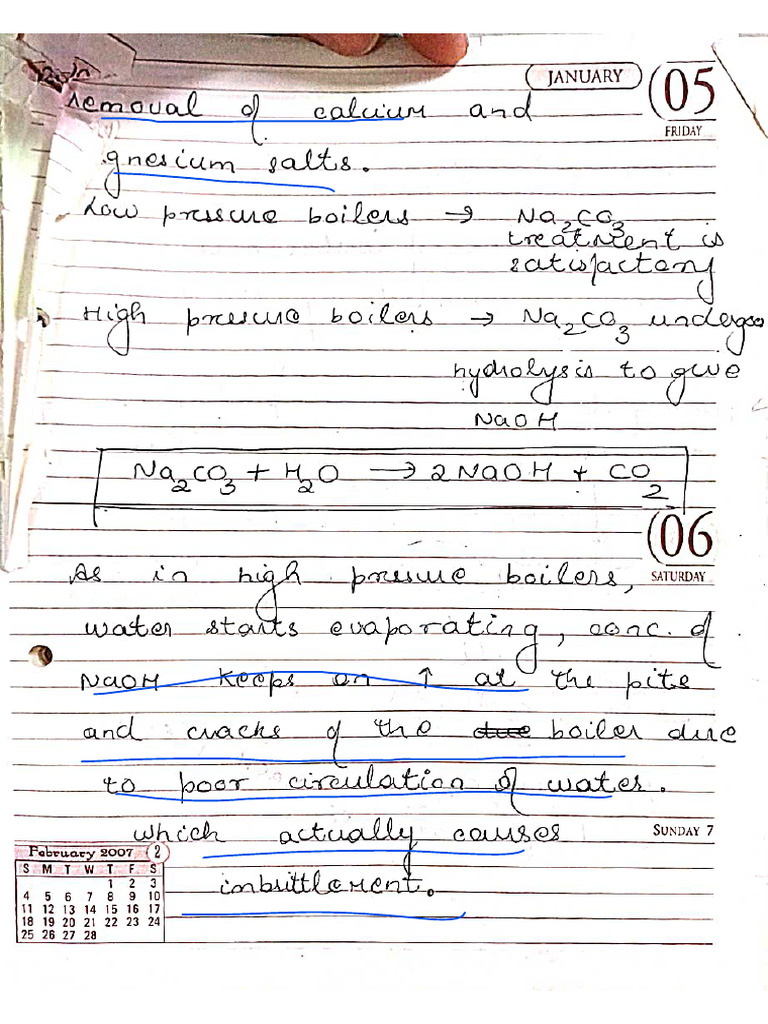 JANUARY
05
FRIDAY
removal of calcium and
gnesium salts.
Low pressure boilers → Na2CO3
treatment is
satisfactory
High pressure boilers → Na2CO3 undergoes
hydrolysis to give
NaOH
Na2CO3 + H2O → 2NaOH + CO2
06
SATURDAY
As in high pressure boilers,
water starts evaporating, conc. of
NaOH keeps on ↑ at the pits
and cracks of the due boiler due
to poor circulation of water.
SUNDAY 7
which actually causes
imbrittlement.
February 2007 2
S M T W T F S
1 2 3
4 5 6 7 8 9 10
11 12 13 14 15 16 17
18 19 20 21 22 23 24
25 26 27 28